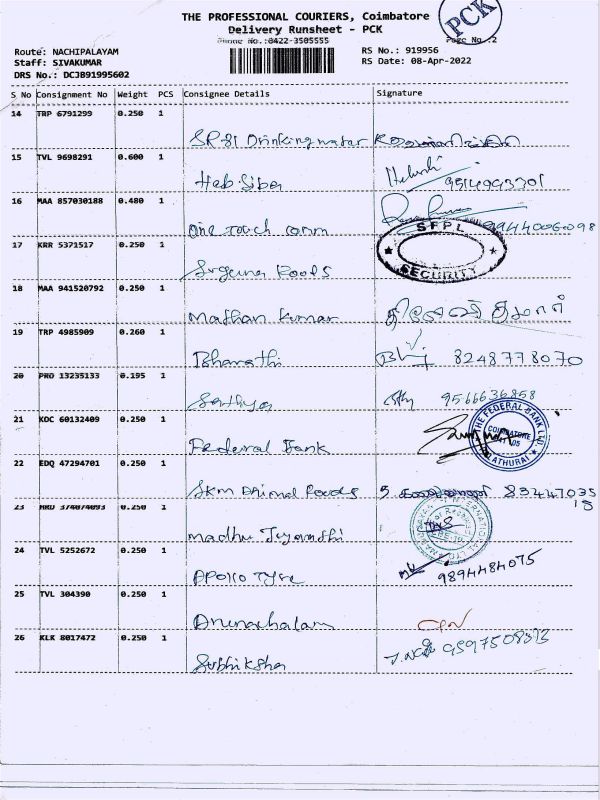 THE PROFESSIONAL COURIERS, Coimbatore
Delivery Runsheet - PCK
PCK
Phone No.:0422-3505555
Page No.:2
Route: NACHIPALAYAM
Staff: SIVAKUMAR
DRS No.: DCJB91995602
RS No.: 919956
RS Date: 08-Apr-2022
S No Consignment No Weight PCS Consignee Details Signature
14 TRP 6791299 0.250 1
SR 81 Drinking water
15 TVL 9698291 0.600 1
Heb Siba
16 MAA 857030188 0.480 1
One Touch comm 9944006098
17 KRR 5371517 0.250 1
Suguna Foods
SFPL SECURITY
18 MAA 941520792 0.250 1
Mathan Kumar
19 TRP 4985909 0.260 1
Bharathi 8248778070
20 PRO 13235133 0.195 1
Sathya 9566636858
21 KDC 60132409 0.250 1
Federal Bank
THE FEDERAL BANK LTD. COIMBATORE
22 EDQ 47294701 0.250 1
SKM Animal Foods 83447035
18
23 MRD 374074093 0.250 1
Madhu Jeyandhi
24 TVL 5252672 0.250 1
Apollo Tyre 9894484075
25 TVL 304390 0.250 1
Arunachalam
26 KLK 8017472 0.250 1
Subhiksha